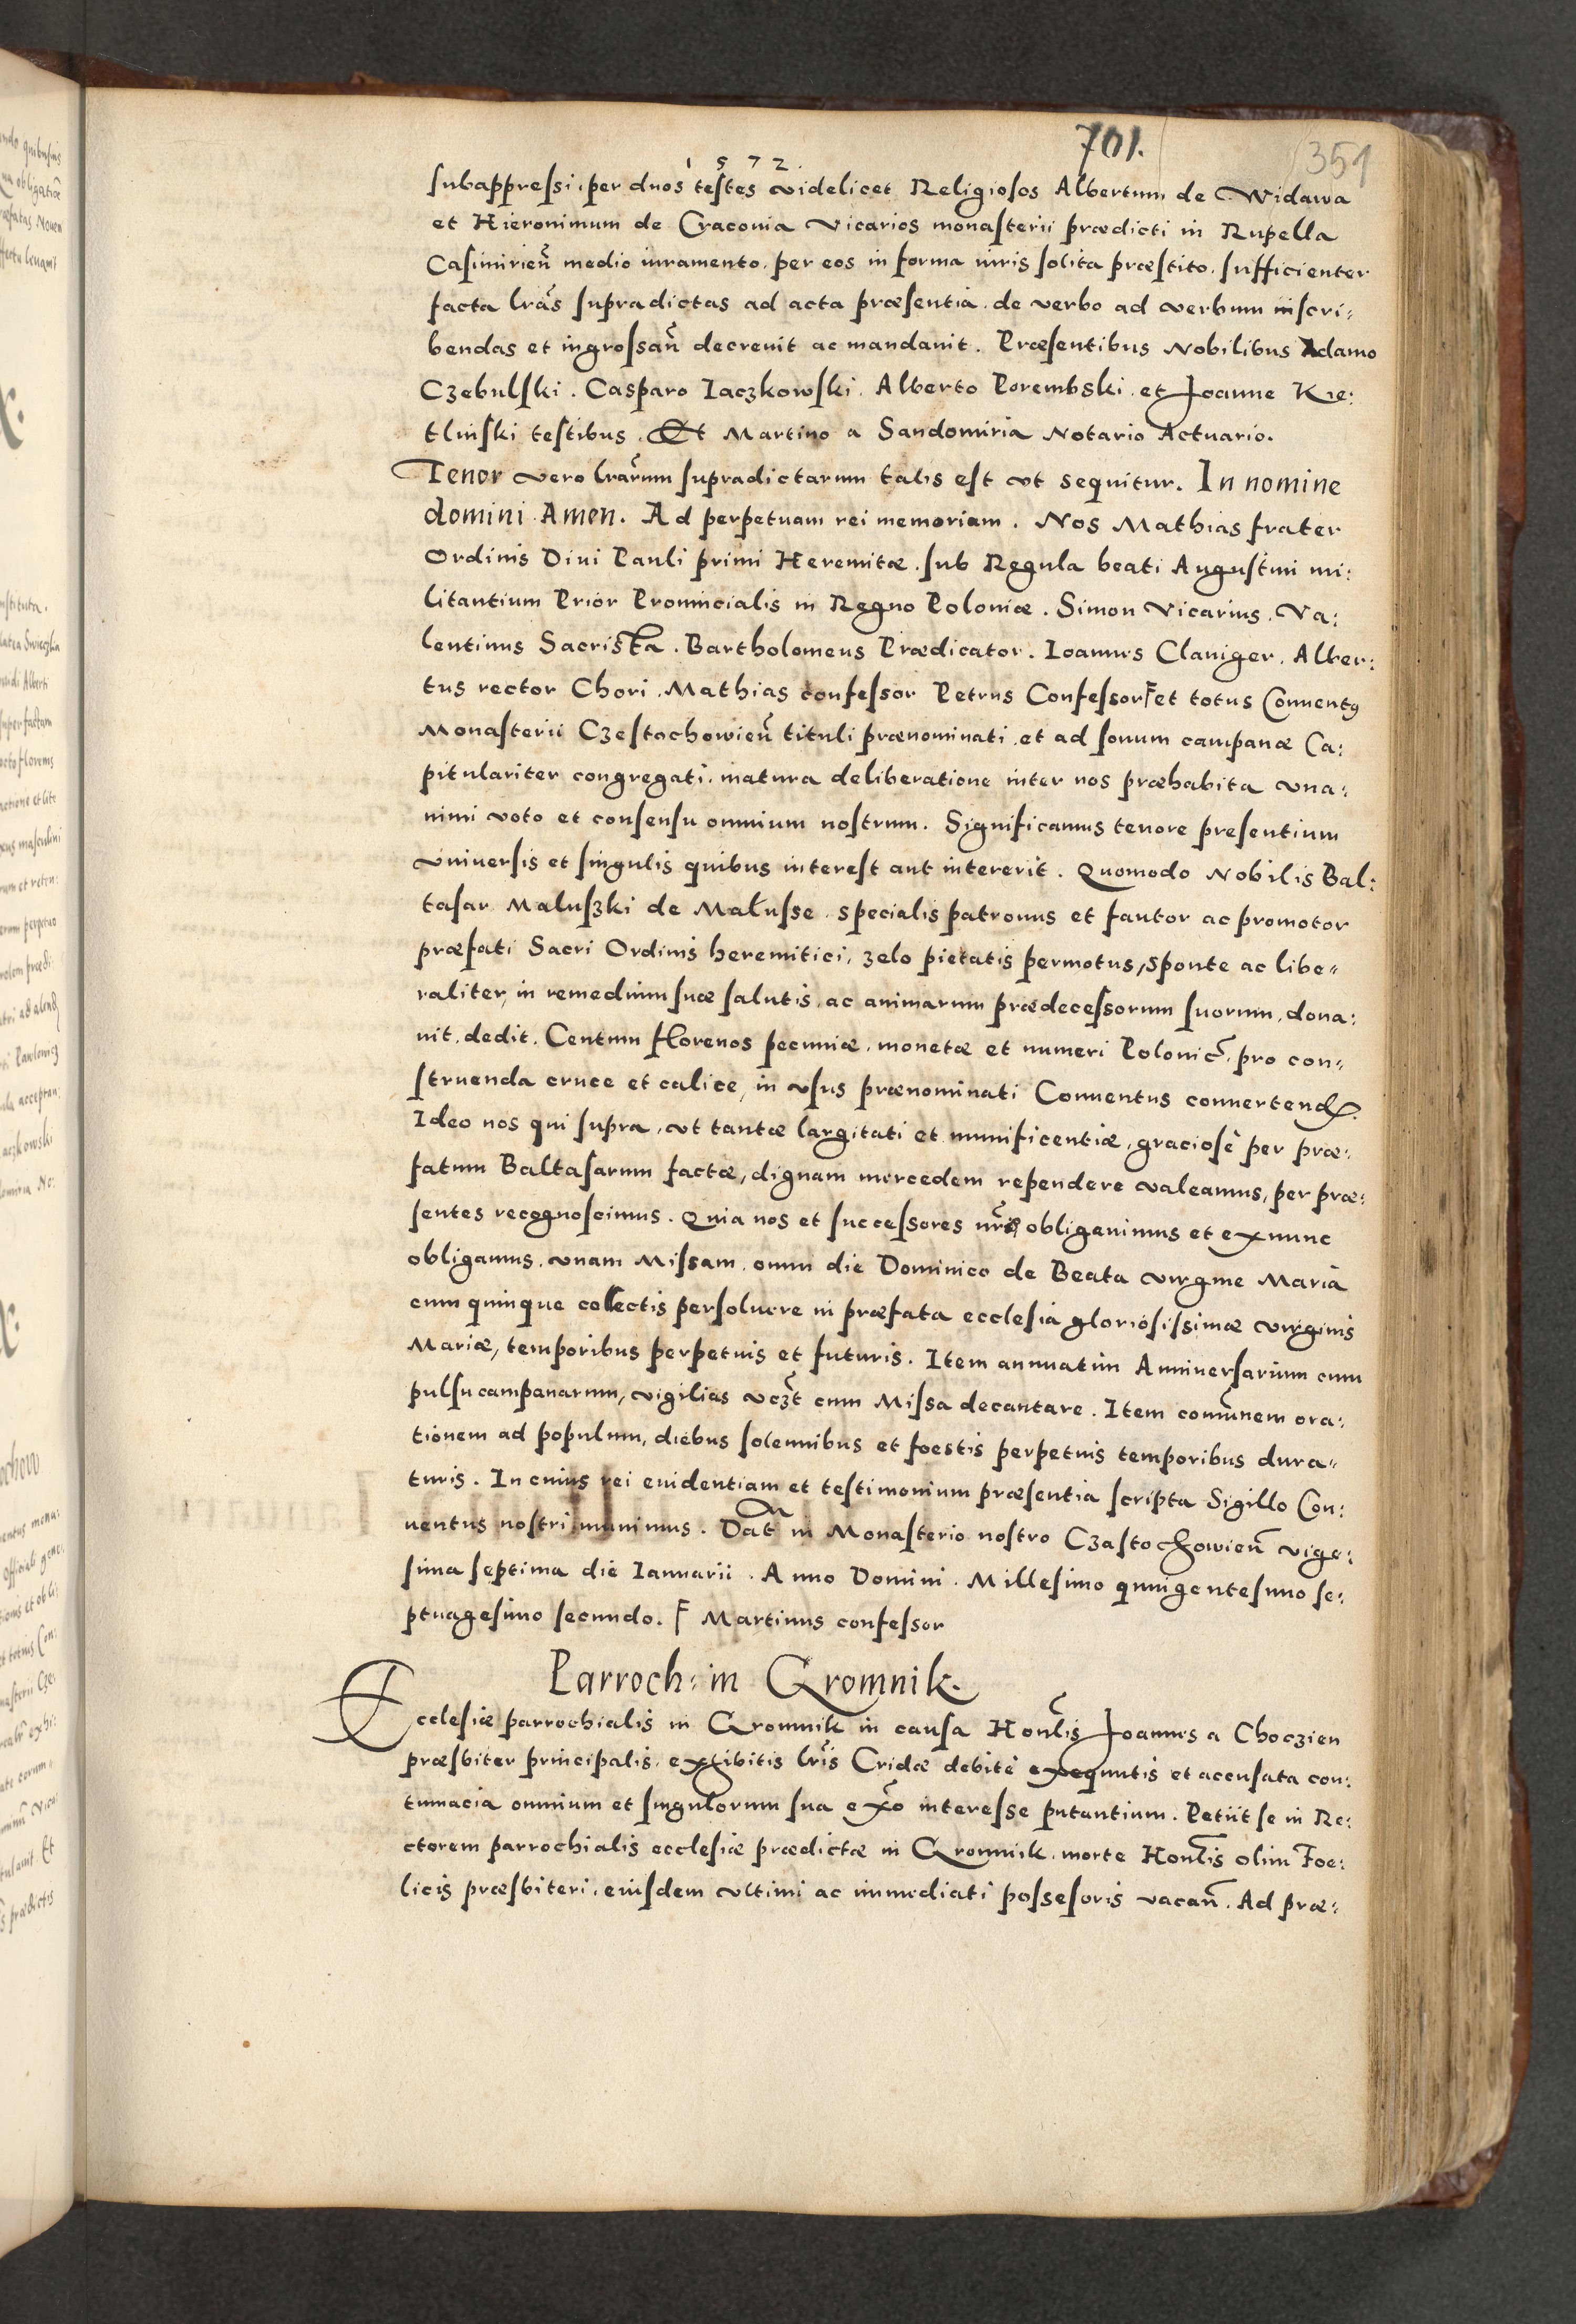 701.
351
1572.
subappressi, per duos testes videlicet Religiosos Albertum de Widawa
et Hieronimum de Cracouia Vicarios monasterii prædicti in Rupella
Casimirień medio iuramento, per eos in forma iuris solita præstito, sufficienter
facta lr̃as supradictas ad acta præsentia, de verbo ad verbum inscri:
bendas et ingrossañ decreuit ac mandauit. Præsentibus Nobilibus Adamo
Czebulski. Casparo Iaczkowski. Alberto Porembski. et Joanne Kie:
tlinski testibus. Et Martino a Sandomiria Notario Actuario.
Tenor vero lrãrum supradictarum talis est vt sequitur. In nomine
domini Amen. Ad perpetuam rei memoriam. Nos Mathias frater
Ordinis Diui Pauli primi Heremitæ. sub Regula beati Augustini mi:
litantium Prior Prouincialis in Regno Poloniæ. Simon Vicarius. Va:
lentinus Sacrista. Bartholomeus Prædicator. Ioannes Clauiger. Alber:
tus rector Chori. Mathias confessor Petrus Confessor F et totus Conuentꝯ
Monasterii Czestochowień tituli prænominati, et ad sonum campanæ Ca:
pitulariter congregati, matura deliberatione inter nos præhabita vna:
nimi voto et consensu omnium nostrum. Significamus tenore presentium
vniuersis et singulis quibus interest aut intererit. Quomodo Nobilis Bal:
tasar Maluszki de Małusse. specialis patronus et fautor ac promotor
præfati Sacri Ordinis heremitici, zelo pietatis permotus, sponte ac libe=
raliter, in remedium suæ salutis, ac animarum prædecessorum suorum, dona:
uit, dedit. Centum florenos pecuniæ, monetæ et numeri Polonic̃, pro con=
struenda cruce et calice, in vsus prænominati Conuentus conuertend.
Ideo nos qui supra, vt tantæ largitati et munificentiæ, graciosè per præ:
fatum Baltasarum factæ, dignam mercedem rependere valeamus, per præ:
sentes recognoscimus. Quia nos et successores nr̃os obligauimus et exnunc
obligamus, vnam Missam, omni die Dominico de Beata virgine Maria
cum quinque collectis persoluere in præfata ecclesia gloriosissimæ virginis
Mariæ, temporibus perpetuis et futuris. Item annuatim Anniuersarium cum
pulsu campanarum, vigilias vcz̃t cum Missa decantare. Item com̃unem ora:
tionem ad populum, diebus solennibus et foestis perpetuis temporibus dura=
turis. In cuius rei euidentiam et testimonium præsentia scripta Sigillo Con:
uentus nostri munimus. Dat in Monasterio nostro Czastochowień vige:
sima septima die Ianuarii. Anno Domini. Millesimo quingentesimo se:
ptuagesimo secundo. F Martinus confessor
Parroch: in Gromnik.
Ecclesiæ parrochialis in Gromnik in causa Honl̃is Joannes a Choczien
præsbiter principalis, exhibitis lr̃is Cridæ debitè exequutis et accusata con:
tumacia omnium et singulorum sua ex̃o interesse putantium. Petiit se in Re:
ctorem parrochialis ecclesiæ prædictæ in Gromnik, morte Honl̃is olim Foe:
licis præsbiteri, eiusdem vltimi ac immediati possesoris vacañ. Ad præ: